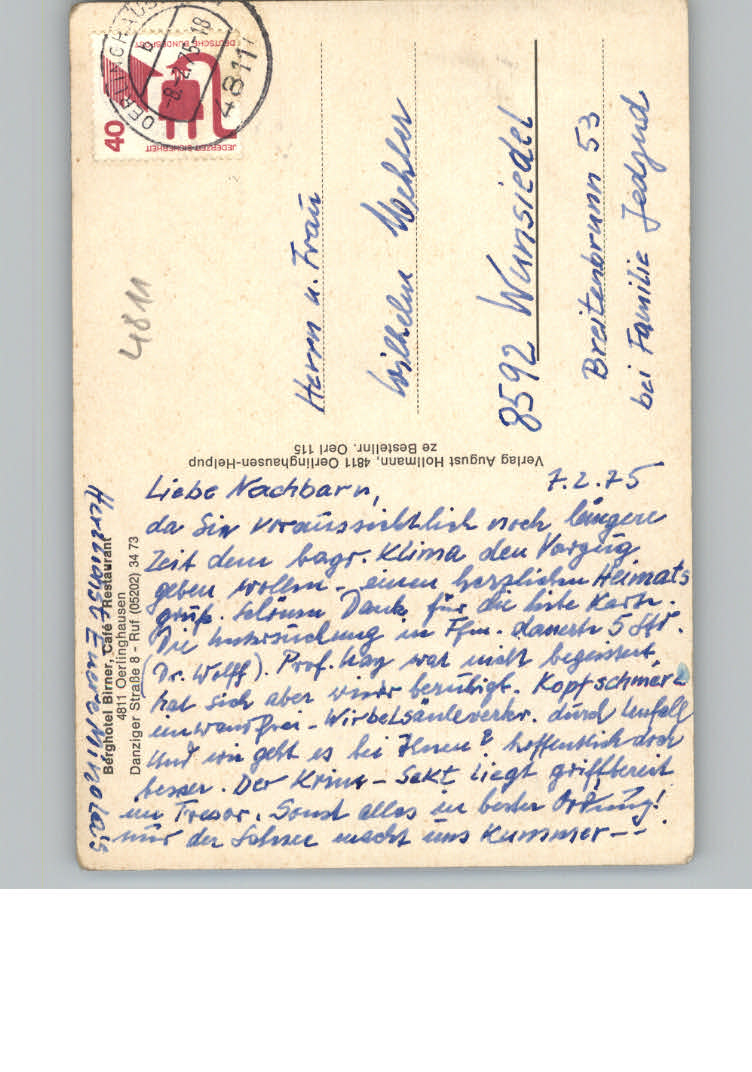 OERLINGHAUSEN
-8.-2.75-18
4811
DEUTSCHE BUNDESPOST
JEDERZEIT SICHERHEIT
40
4811
Herrn u. Frau
Wilhelm
8592 Wunsiedel
Breitenbrunn 53
bei Familie
Verlag August Hollmann, 4811 Oerlinghausen-Helpup
ze Bestellnr. Oerl 115
Berghotel Birner, Café - Restaurant
4811 Oerlinghausen
Danziger Straße 8 - Ruf (05202) 34 73
7.2.75
Liebe Nachbarn,
da Sie voraussichtlich noch längere
Zeit dem bayr. Klima den Vorzug
geben wollen - einen herzlichen Heimats
gruß. Schönen Dank für die liebe Karte.
Die Untersuchung in Ffm. dauerte 5 Std.
(Dr. Wolff). Prof. Hay war nicht begeistert,
hat sich aber wieder beruhigt. Kopfschmerz
einwandfrei - Wirbelsäulenverkr. durch Unfall
Und wie geht es bei Ihnen? hoffentlich doch
besser. Der Krim-Sekt liegt griffbereit
im Tresor. Sonst alles in bester Ordnung!
nur der Schnee macht uns Kummer--.
Herzlichst Eure